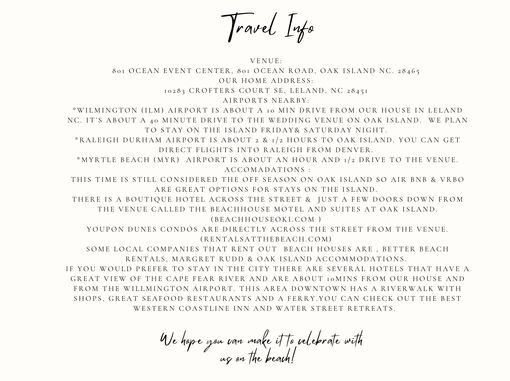 Travel Info
VENUE:
801 OCEAN EVENT CENTER, 801 OCEAN ROAD, OAK ISLAND NC. 28465
OUR HOME ADDRESS:
10283 CROFTERS COURT SE, LELAND, NC 28451
AIRPORTS NEARBY:
*WILMINGTON (ILM) AIRPORT IS ABOUT A 10 MIN DRIVE FROM OUR HOUSE IN LELAND
NC. IT'S ABOUT A 40 MINUTE DRIVE TO THE WEDDING VENUE ON OAK ISLAND. WE PLAN
TO STAY ON THE ISLAND FRIDAY& SATURDAY NIGHT.
*RALEIGH DURHAM AIRPORT IS ABOUT 2 & 1/2 HOURS TO OAK ISLAND. YOU CAN GET
DIRECT FLIGHTS INTO RALEIGH FROM DENVER.
*MYRTLE BEACH (MYR) AIRPORT IS ABOUT AN HOUR AND 1/2 DRIVE TO THE VENUE.
ACCOMADATIONS :
THIS TIME IS STILL CONSIDERED THE OFF SEASON ON OAK ISLAND SO AIR BNB & VRBO
ARE GREAT OPTIONS FOR STAYS ON THE ISLAND.
THERE IS A BOUTIQUE HOTEL ACROSS THE STREET & JUST A FEW DOORS DOWN FROM
THE VENUE CALLED THE BEACHHOUSE MOTEL AND SUITES AT OAK ISLAND.
(BEACHHOUSEOKI.COM )
YOUPON DUNES CONDOS ARE DIRECTLY ACROSS THE STREET FROM THE VENUE.
(RENTALSATTHEBEACH.COM)
SOME LOCAL COMPANIES THAT RENT OUT BEACH HOUSES ARE , BETTER BEACH
RENTALS, MARGRET RUDD & OAK ISLAND ACCOMMODATIONS.
IF YOU WOULD PREFER TO STAY IN THE CITY THERE ARE SEVERAL HOTELS THAT HAVE A
GREAT VIEW OF THE CAPE FEAR RIVER AND ARE ABOUT 10MINS FROM OUR HOUSE AND
FROM THE WILLMINGTON AIRPORT. THIS AREA DOWNTOWN HAS A RIVERWALK WITH
SHOPS, GREAT SEAFOOD RESTAURANTS AND A FERRY.YOU CAN CHECK OUT THE BEST
WESTERN COASTLINE INN AND WATER STREET RETREATS.
We hope you can make it to celebrate with
us on the beach!